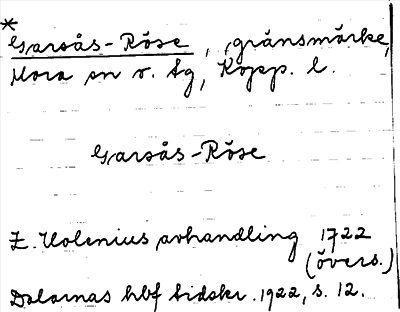 *
Garsås-Röse, gränsmärke,
Mora sn o. tg, Kopp. l.
Garsås-Röse
Z. Holenius avhandling 1722
(övers.)
Dalarnas hbf tidskr. 1922, s. 12.